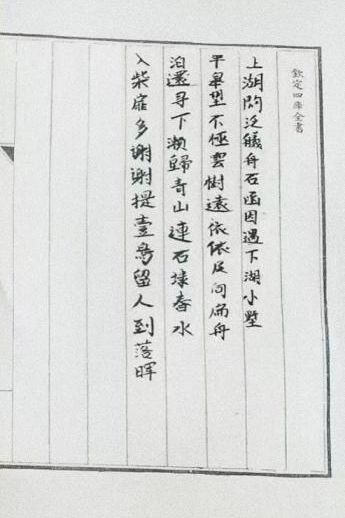 欽定四庫全書
上湖閒泛艤舟石函因過下湖小墅
平皋望不極雲樹遠依依及向扁舟
泊還尋下瀨歸青山連石埭春水
入柴扉多謝謝提壺鳥留人到落暉